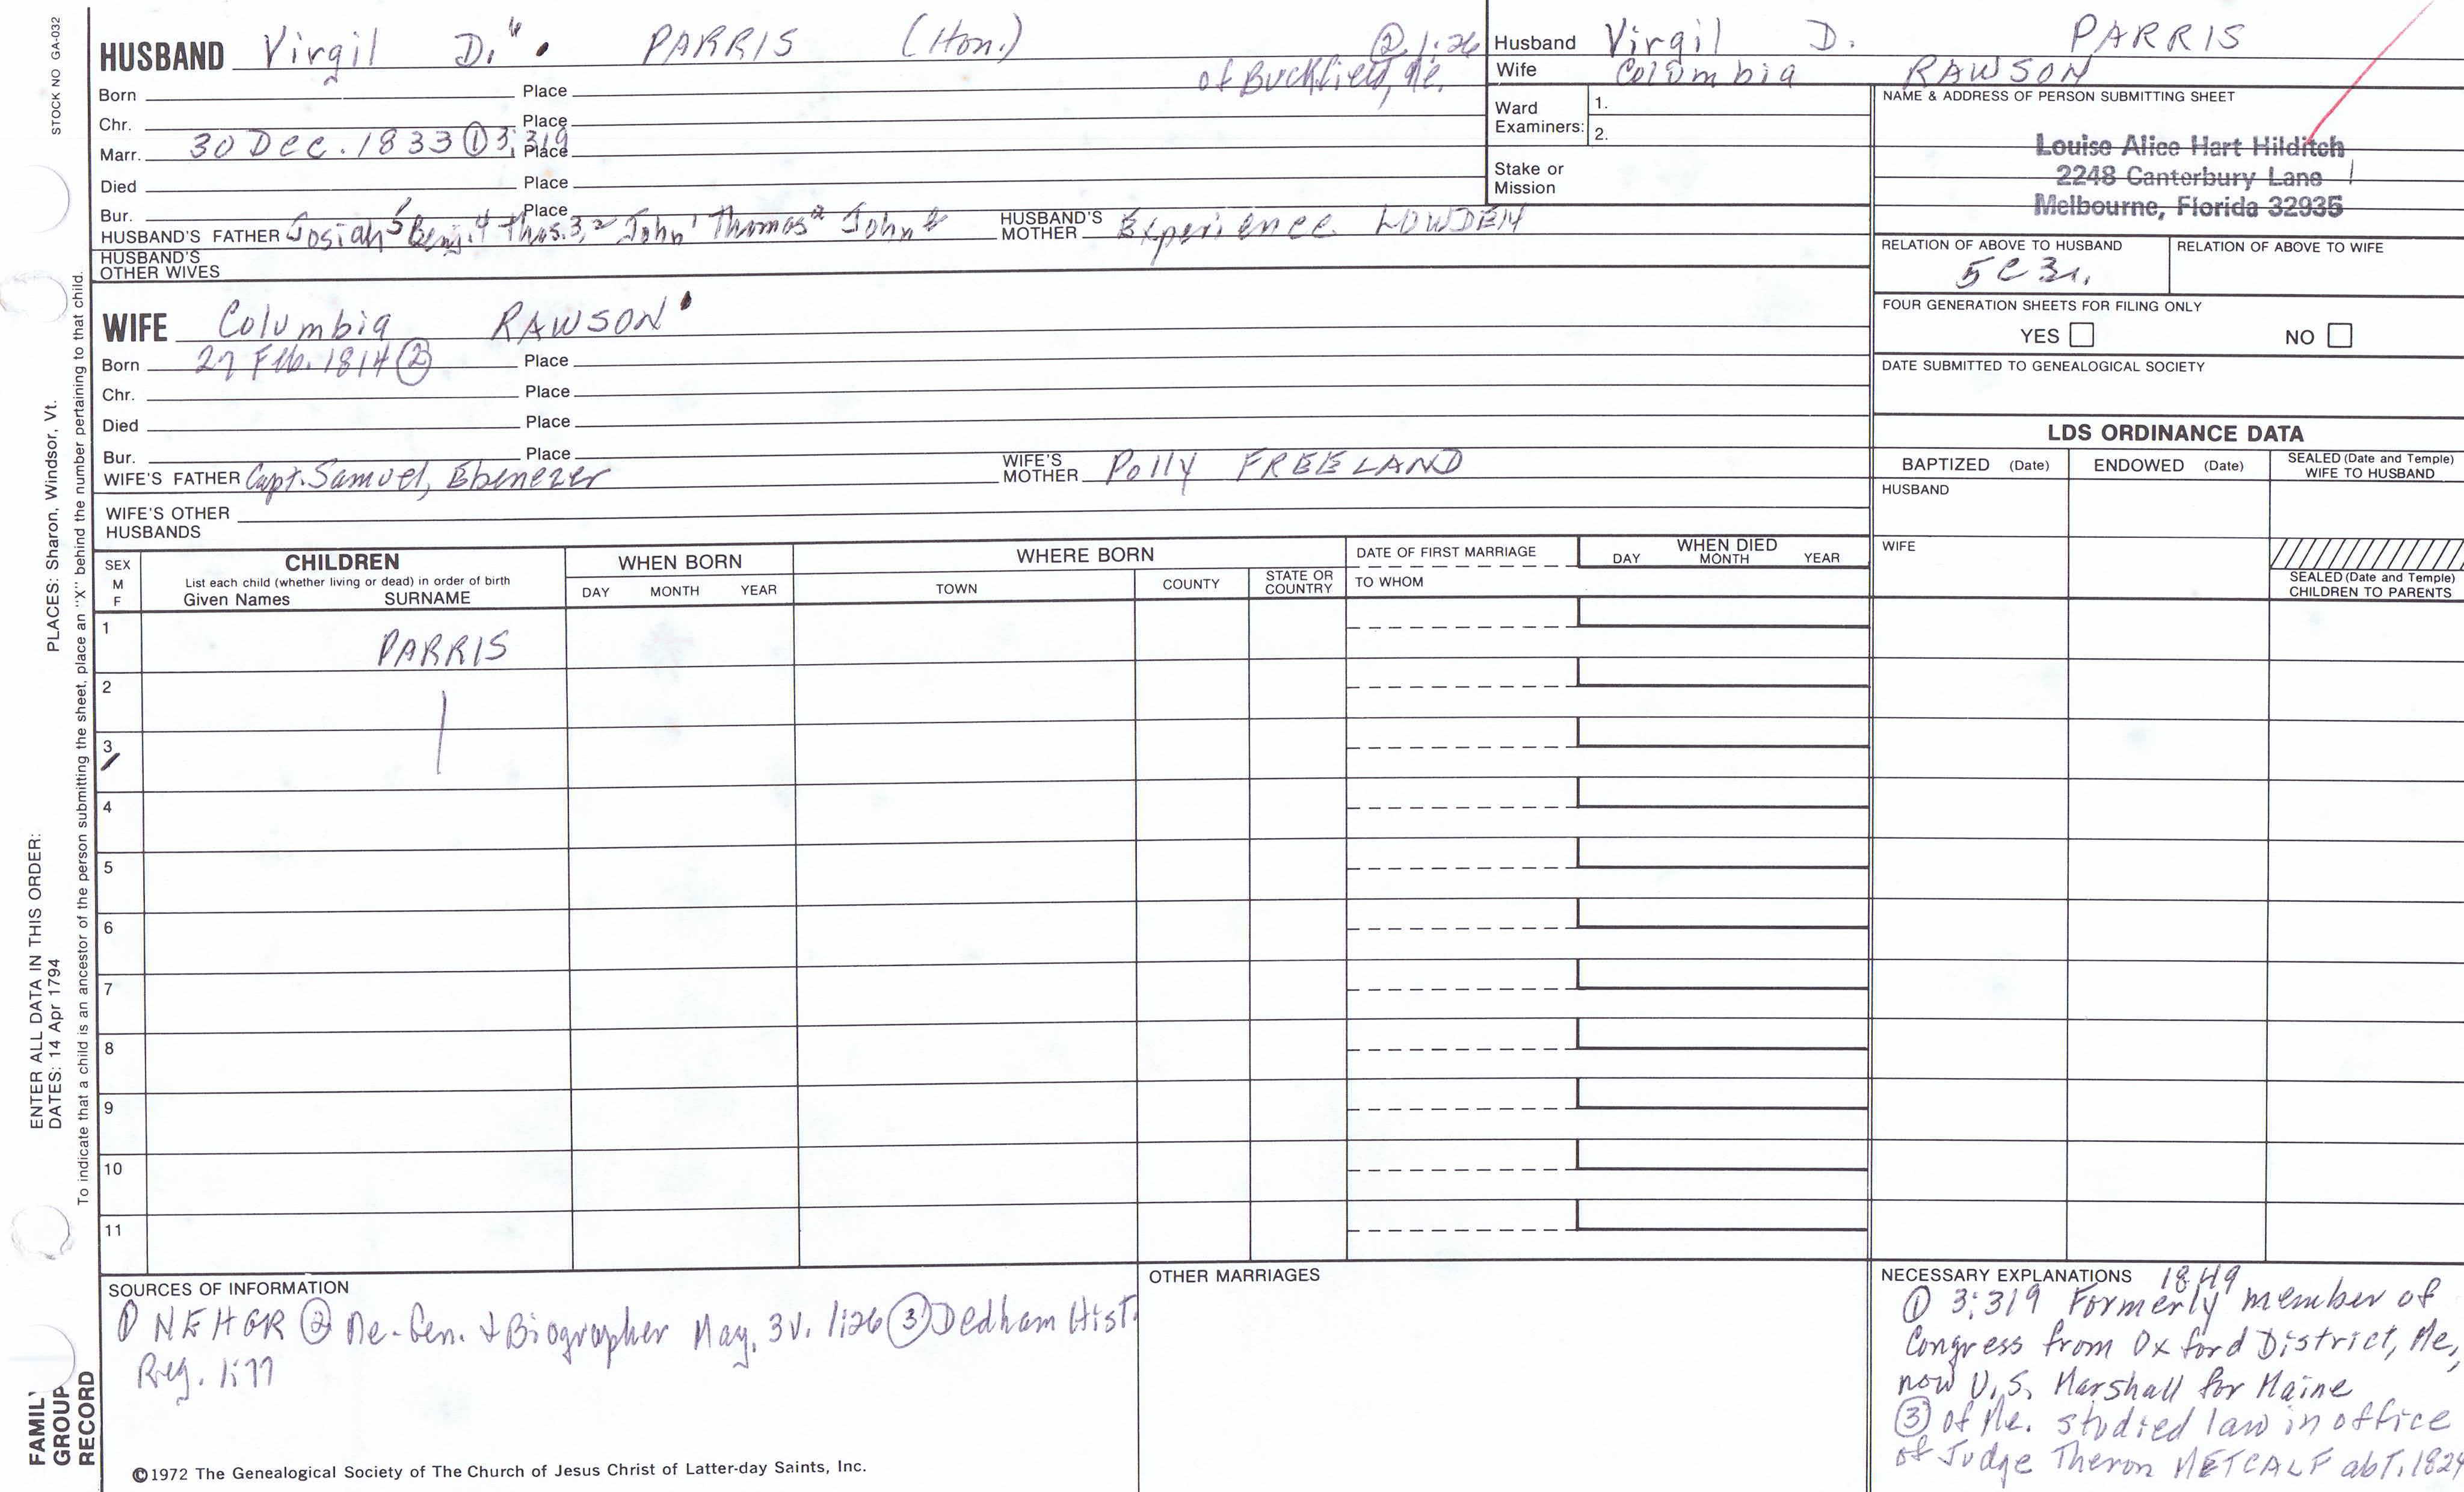 STOCK NO GA-032
HUSBAND Virgil D. PARRIS (Hon.) ② 1:26
of Buckfield, Me.
Born Place
Chr. Place
Marr. 30 Dec. 1833 ① 3:319 Place
Died Place
Bur. Place
HUSBAND'S FATHER Josiah5 Benj.4 Thos.3,2 John1 Thomas John
HUSBAND'S MOTHER Experience LOWDEN
HUSBAND'S OTHER WIVES
WIFE Columbia RAWSON
Born 27 Feb. 1814 ② Place
Chr. Place
Died Place
Bur. Place
WIFE'S FATHER Capt. Samuel, Ebenezer
WIFE'S MOTHER Polly FREELAND
WIFE'S OTHER HUSBANDS
Husband Virgil D. PARRIS
Wife Columbia RAWSON
Ward Examiners: 1.
2.
Stake or Mission
NAME & ADDRESS OF PERSON SUBMITTING SHEET
Louise Alice Hart Hilditch
2248 Canterbury Lane
Melbourne, Florida 32935
RELATION OF ABOVE TO HUSBAND
5C3r.
RELATION OF ABOVE TO WIFE
FOUR GENERATION SHEETS FOR FILING ONLY
YES NO
DATE SUBMITTED TO GENEALOGICAL SOCIETY
LDS ORDINANCE DATA
BAPTIZED (Date) ENDOWED (Date) SEALED (Date and Temple) WIFE TO HUSBAND
HUSBAND
WIFE
SEALED (Date and Temple) CHILDREN TO PARENTS
SEX M F
CHILDREN
List each child (whether living or dead) in order of birth
Given Names SURNAME
WHEN BORN
DAY MONTH YEAR
WHERE BORN
TOWN COUNTY STATE OR COUNTRY
DATE OF FIRST MARRIAGE
TO WHOM
WHEN DIED
DAY MONTH YEAR
1 PARRIS
2
3
4
5
6
7
8
9
10
11
SOURCES OF INFORMATION
① NEHGR ② Me. Gen. & Biographer Mag. 3v. 1:26 ③ Dedham Hist.
Reg. 1:77
OTHER MARRIAGES
NECESSARY EXPLANATIONS 1849
① 3:319 Formerly member of
Congress from Oxford District, Me,
now U.S. Marshall for Maine
③ of Me. studied law in office
of Judge Theron METCALF abt. 1829
©1972 The Genealogical Society of The Church of Jesus Christ of Latter-day Saints, Inc.
ENTER ALL DATA IN THIS ORDER:
DATES: 14 Apr 1794 PLACES: Sharon, Windsor, Vt.
To indicate that a child is an ancestor of the person submitting the sheet, place an "X" behind the number pertaining to that child.
FAMILY
GROUP
RECORD